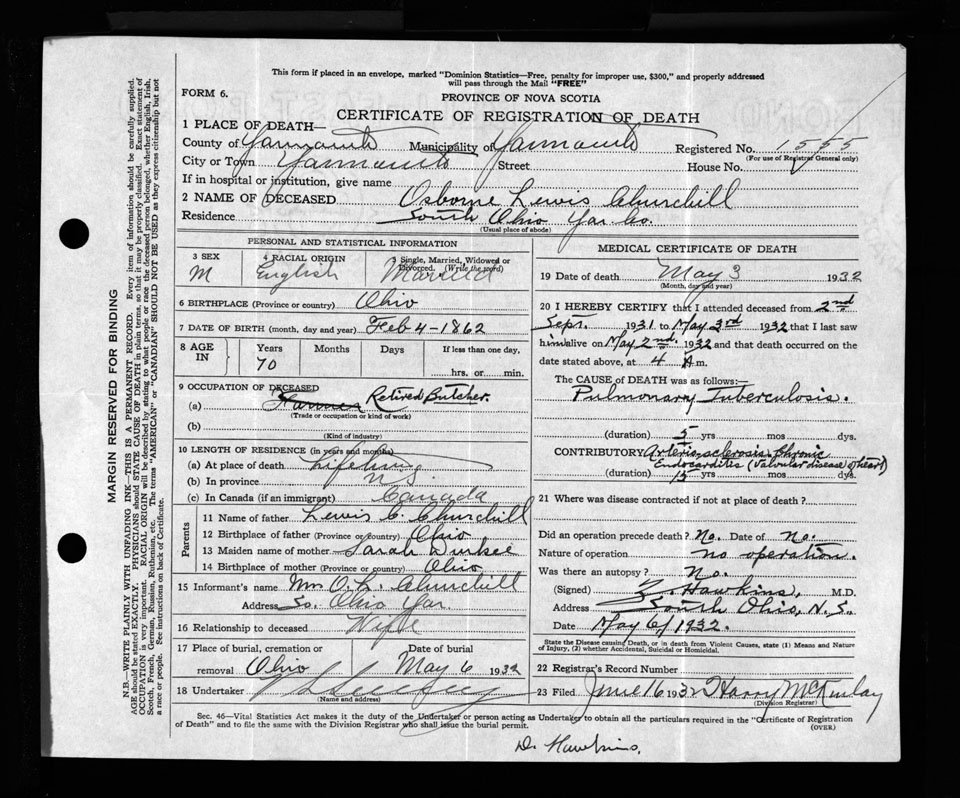 This form if placed in an envelope, marked "Dominion Statistics—Free, penalty for improper use, $300," and properly addressed
will pass through the Mail "FREE"
FORM 6.
PROVINCE OF NOVA SCOTIA
CERTIFICATE OF REGISTRATION OF DEATH
1 PLACE OF DEATH—
County of Yarmouth Municipality of Yarmouth Registered No. 1555
(For use of Registrar General only)
City or Town Yarmouth Street House No.
If in hospital or institution, give name
2 NAME OF DECEASED Osborne Lewis Churchill
Residence South Ohio Yar. Co.
(Usual place of abode)
PERSONAL AND STATISTICAL INFORMATION
3 SEX 4 RACIAL ORIGIN 5 Single, Married, Widowed or
Divorced. (Write the word)
M English Married
6 BIRTHPLACE (Province or country) Ohio
7 DATE OF BIRTH (month, day and year) Feb 4-1862
8 AGE IN Years Months Days If less than one day,
70 hrs. or min.
9 OCCUPATION OF DECEASED
(a) Farmer Retired Butcher.
(Trade or occupation or kind of work)
(b)
(Kind of industry)
10 LENGTH OF RESIDENCE (in years and months)
(a) At place of death Lifetime
(b) In province N S
(c) In Canada (if an immigrant) Canada
Parents
11 Name of father Lewis C. Churchill
12 Birthplace of father (Province or country) Ohio
13 Maiden name of mother Sarah Durkee
14 Birthplace of mother (Province or country) Ohio
15 Informant's name Mrs O. L. Churchill
Address So. Ohio Yar.
16 Relationship to deceased Wife
17 Place of burial, cremation or Date of burial
removal Ohio May 6 1932
18 Undertaker
(Name and address)
MEDICAL CERTIFICATE OF DEATH
19 Date of death May 3 1932
(Month, day and year)
20 I HEREBY CERTIFY that I attended deceased from 2nd
Sept. 1931 to May 3rd 1932 that I last saw
him alive on May 2nd 1932 and that death occurred on the
date stated above, at 4 A m.
The CAUSE of DEATH was as follows:—
Pulmonary Tuberculosis.
(duration) 5 yrs mos dys.
CONTRIBUTORY Arterio-sclerosis. Chronic
Endocarditis (Valvular disease of heart)
(duration) 15 yrs mos dys.
21 Where was disease contracted if not at place of death?
Did an operation precede death? No. Date of no.
Nature of operation no operation.
Was there an autopsy? No.
(Signed) Z. Hawkins, M.D.
Address South Ohio, N. S.
Date May 6/1932.
State the Disease causing Death, or in death from Violent Causes, state (1) Means and Nature
of Injury, (2) whether Accidental, Suicidal or Homicidal.
22 Registrar's Record Number
23 Filed June 16 1932 Harry McKinlay
(Division Registrar)
Sec. 46—Vital Statistics Act makes it the duty of the Undertaker or person acting as Undertaker to obtain all the particulars required in the "Certificate of Registration
of Death" and to file the same with the Division Registrar who shall issue the burial permit.
(OVER)
D. Hawkins.
MARGIN RESERVED FOR BINDING
N.B.—WRITE PLAINLY WITH UNFADING INK—THIS IS A PERMANENT RECORD. Every item of information should be carefully supplied.
AGE should be stated EXACTLY. PHYSICIANS should STATE CAUSE OF DEATH in plain terms, so that it may be properly classified. Exact statement of
OCCUPATION is very important. RACIAL ORIGIN will be described by stating to what people or race the deceased person belonged, whether English, Irish,
Scotch, French, German, Russian, Ruthenian, etc. The terms "AMERICAN" or "CANADIAN" SHOULD NOT BE USED as they express citizenship but not
a race or people. See instructions on back of Certificate.